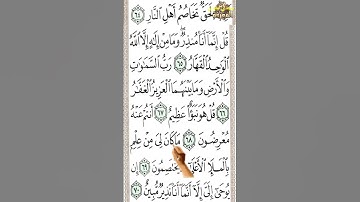 لَحَقٌّ تَخَاصُمُ أَهْلِ ٱلنَّارِ ٦٤
قُلْ إِنَّمَآ أَنَا۠ مُنذِرٌ وَمَا مِنْ إِلَٰهٍ إِلَّا ٱللَّهُ
ٱلْوَٰحِدُ ٱلْقَهَّارُ ٦٥ رَبُّ ٱلسَّمَٰوَٰتِ
وَٱلْأَرْضِ وَمَا بَيْنَهُمَا ٱلْعَزِيزُ ٱلْغَفَّٰرُ
٦٦ قُلْ هُوَ نَبَؤٌا۟ عَظِيمٌ ٦٧ أَنتُمْ عَنْهُ
مُعْرِضُونَ ٦٨ مَا كَانَ لِىَ مِنْ عِلْمٍۭ
بِٱلْمَلَإِ ٱلْأَعْلَىٰٓ يَخْتَصِمُونَ ٦٩ إِن
يُوحَىٰٓ إِلَىَّ إِلَّآ أَنَّمَآ أَنَا۠ نَذِيرٌ مُّبِينٌ ٧٠